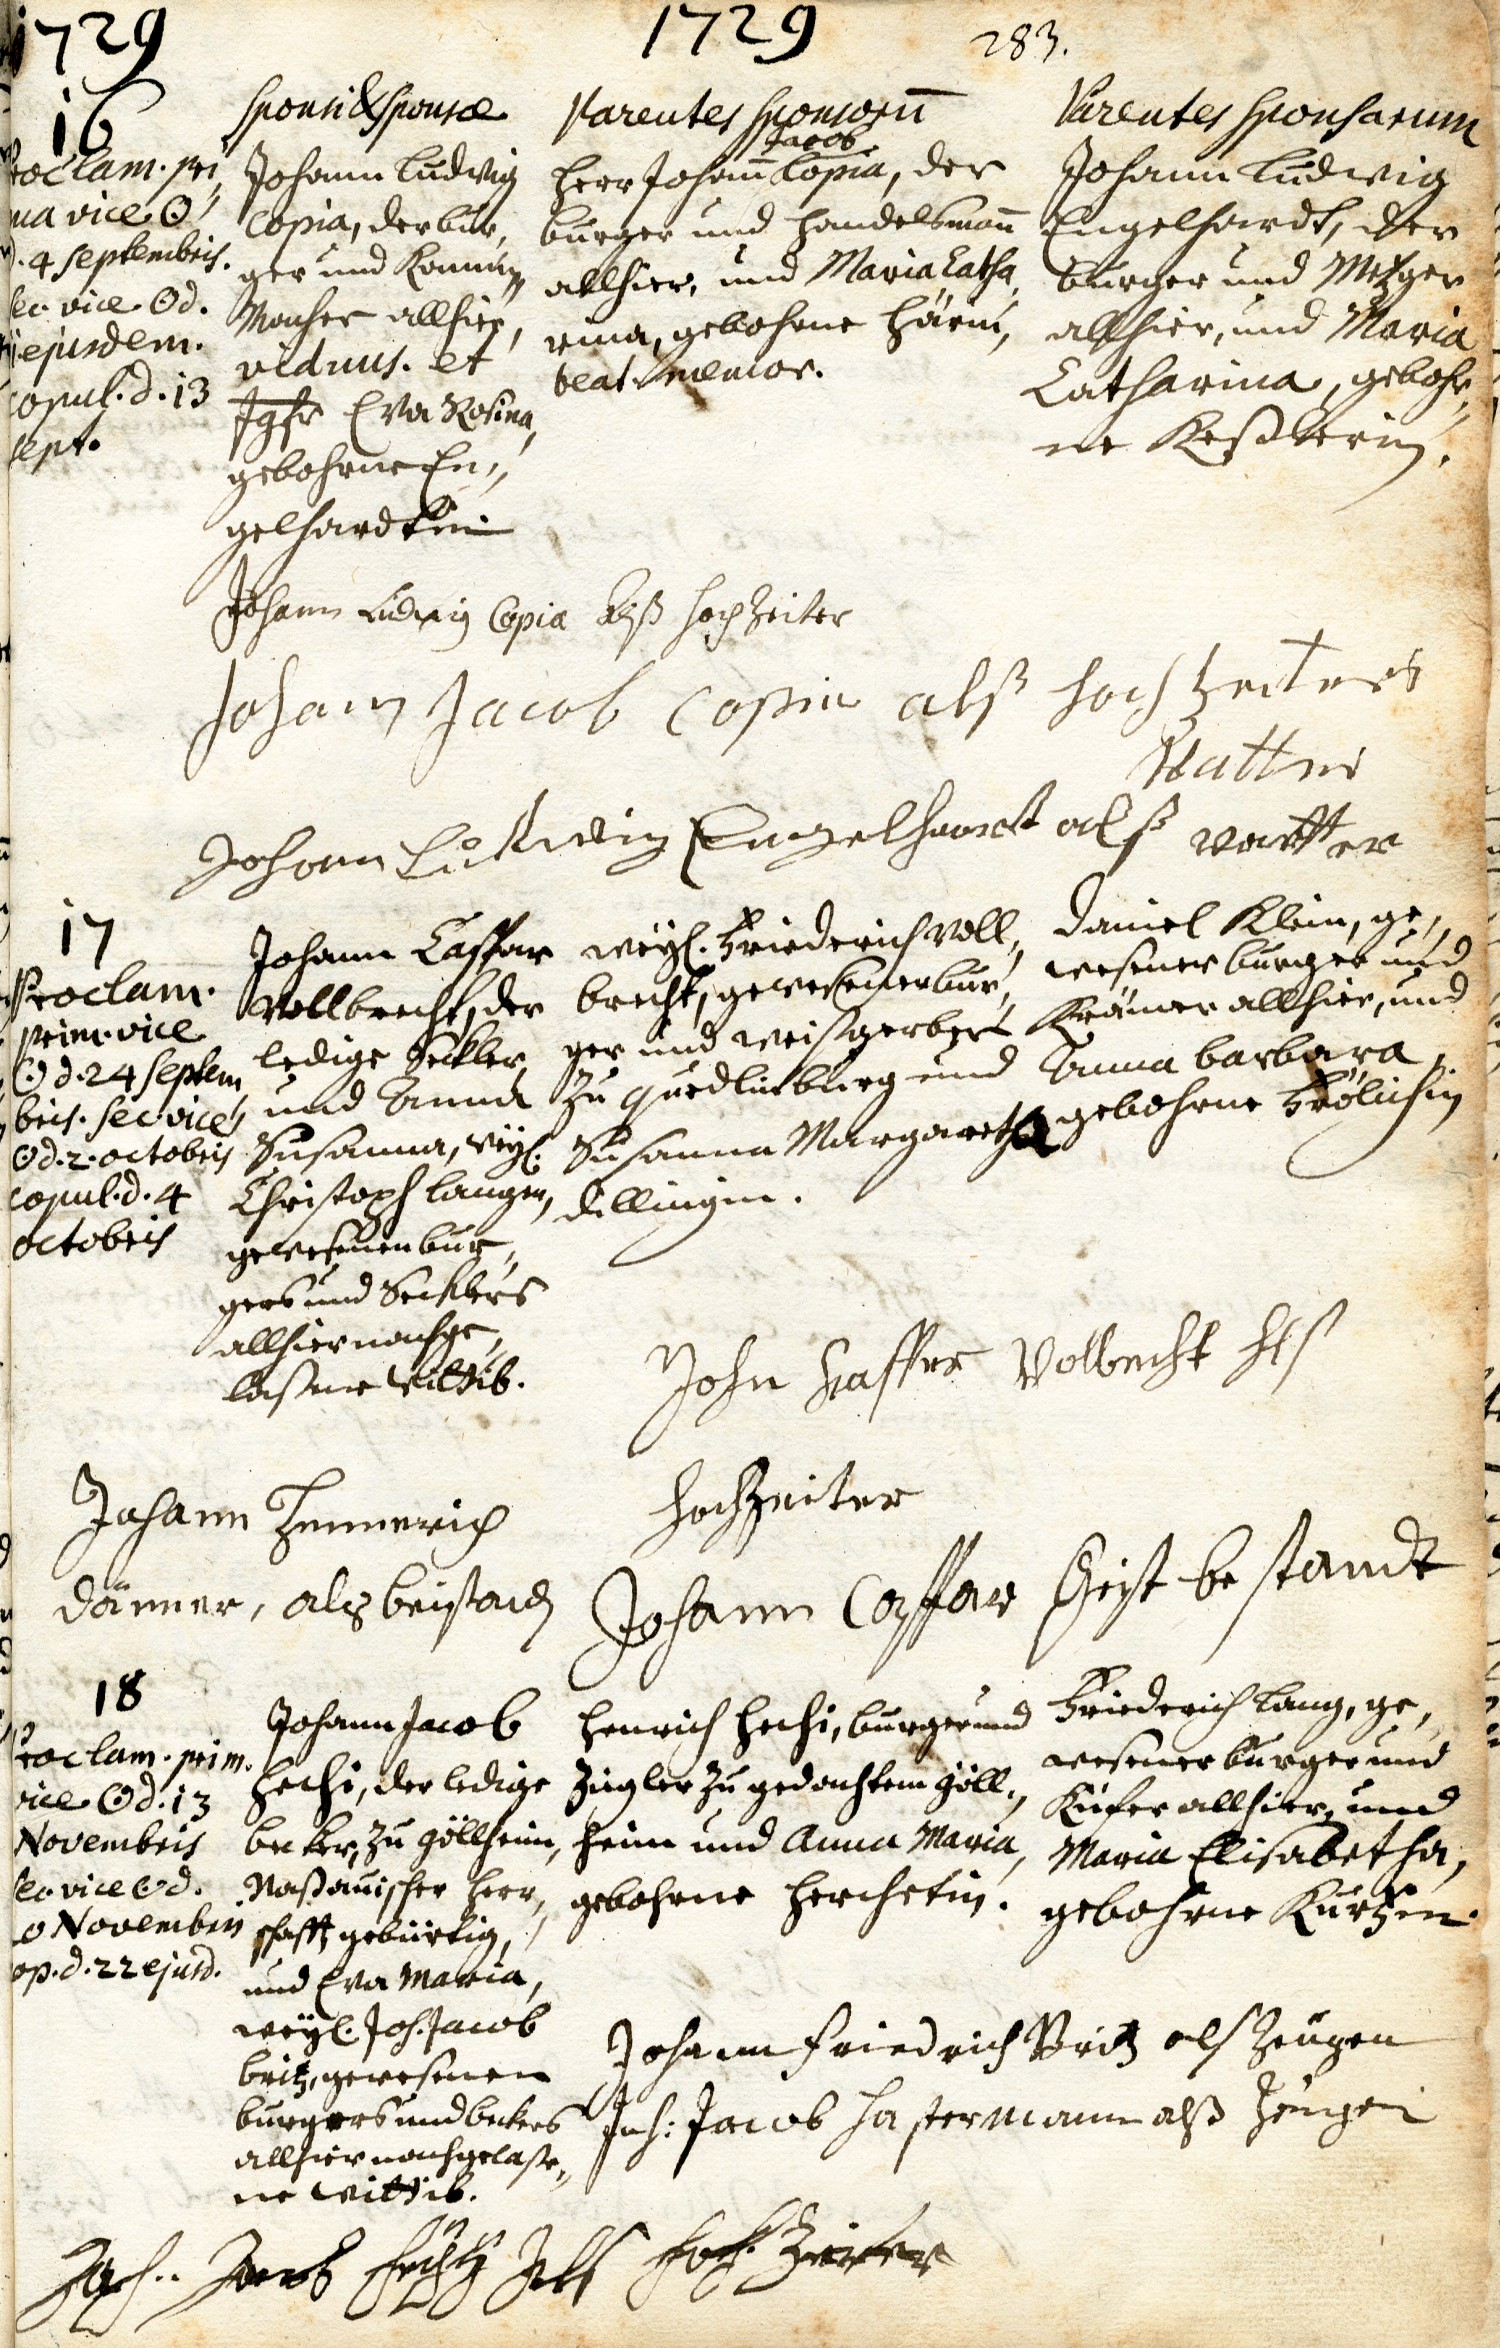 1729 1729 283.
16
Sponsi & Sponsae
Parentes Sponsorum̄
Parentes Sponsarum
roclam. pri,
ma vice ☉
d. 4 Septembris.
sec. vice ☉ d.
ejusdem.
copul. d. 13
Sept.
Johann Ludwig
Copia, der bur,
ger und
allhier,
viduus. et
Jgfr Eva Rosina,
gebohrne En,,
gelhardtin
Jacob
Herr Johañ Copia, der
burger und Handelsmañ
allhier, und Maria Catha,
rina, gebohrne
beat. memor.
Johann Ludwig
Engelhardt, der
burger und Metzger
allhier, und Maria
Catharina, gebohr,,
ne Keßlerin.
Johann Ludwig Copia alß hochZeiter
Johann Jacob Copia alß hochzeiters
Vatter
Johann Ludwig Engelhardt alß vatter
17
Proclam.
prim. vice
☉ d. 24 Septem
bris. sec. vice
☉ d. 2. octobris
copul. d. 4
octobris
Johann Casspar
Vollbrecht, der
ledige Seckler,
und Anna
Susanna, weyl.
Christoph Langen,
gewesenen bur,
gers und Secklers
allhier nachge,
laßene Wittib.
weyl. Friederich Voll,
brecht, gewesener bur,
ger und weißgerber
zu Quedlinburg und
Susanna Margaretha
Dillingin.
Daniel Klein, ge,,
wesener burger und
Krämer allhier, und
Anna barbara,
gebohrne Frölichin
John Casper Volbrecht als
hochzeiter
Johann Emmerich
Dänner, als beistand
Johann Casspar Geist bestandt
18
roclam. prim.
vice ☉ d. 13
Novembris
sec. vice ☉ d.
0 Novembris
op. d. 22 ejusd.
Johann Jacob
Hechi, der ledige
becker, zu Göllheim,
Naßauischer Herr,
schafft gebürtig,
und Eva Maria,
weyl. Joh. Jacob
britz, gewesenen
burgers und beckers
allhier nachgelaße,,
ne Wittib.
Henrich Hechi, burger und
Ziegler zu gedachtem Göll,,
heim und Anna Maria,
gebohrne Herchetin.
Friederich Lang, ge,
wesener burger und
Küfer allhier, und
Maria Elisabetha,
gebohrne Kurtzin.
Johann Friedrich Britz als Zeugen
Joh: Jacob Hastermann alß Zeugen
Joh.. Jacob Als hoch Zeiter